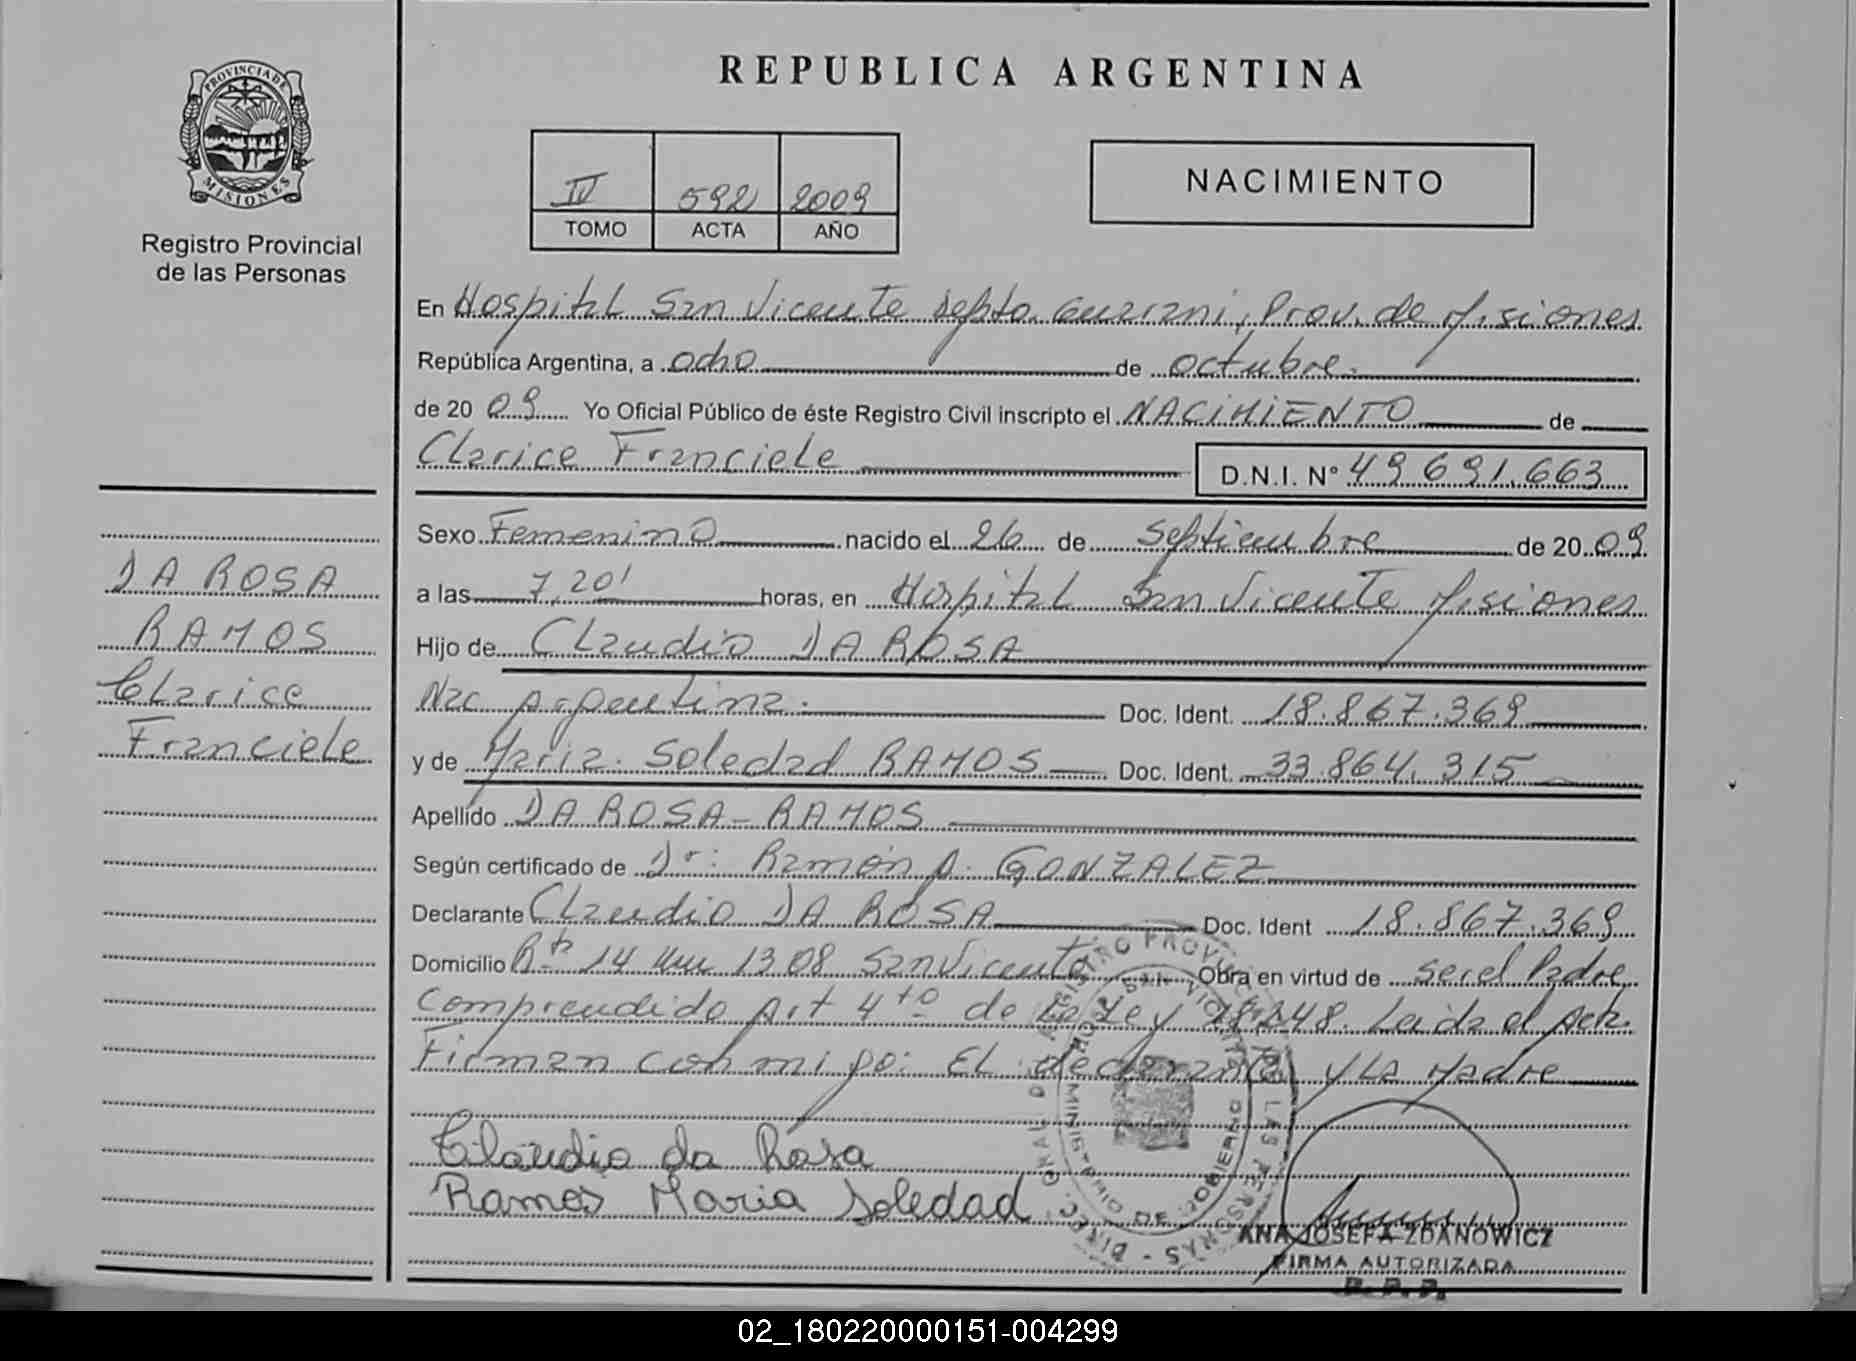 PROVINCIA DE
MISIONES
Registro Provincial
de las Personas
DA ROSA
RAMOS
Clarice
Franciele
REPUBLICA ARGENTINA
IV 592 2009
TOMO ACTA AÑO
NACIMIENTO
En Hospital San Vicente Depto. Guarani, Prov. de Misiones
República Argentina, a ocho de octubre.
de 20 09 Yo Oficial Público de éste Registro Civil inscripto el NACIMIENTO de
Clarice Franciele D.N.I. Nº 49691.663
Sexo Femenino nacido el 26 de Septiembre de 20 09
a las 7,20' horas, en Hospital San Vicente Misiones
Hijo de Claudio DA ROSA
Nac Argentina. Doc. Ident. 18.867.369
y de Maria Soledad RAMOS Doc. Ident. 33864.315
Apellido DA ROSA - RAMOS
Según certificado de Dr: Ramón A. GONZALEZ
Declarante Claudio DA ROSA Doc. Ident 18.867.369
Domicilio Rta 14 Km 1308 San Vicente Obra en virtud de ser el Padre
Comprendido Art 4to de la Ley 18.248. Leida el Acta
Firman conmigo: El declarante y LA Madre
Claudio da Rosa
Ramos Maria Soledad
ANA JOSEFA ZDANOWICZ
FIRMA AUTORIZADA
02_180220000151-004299